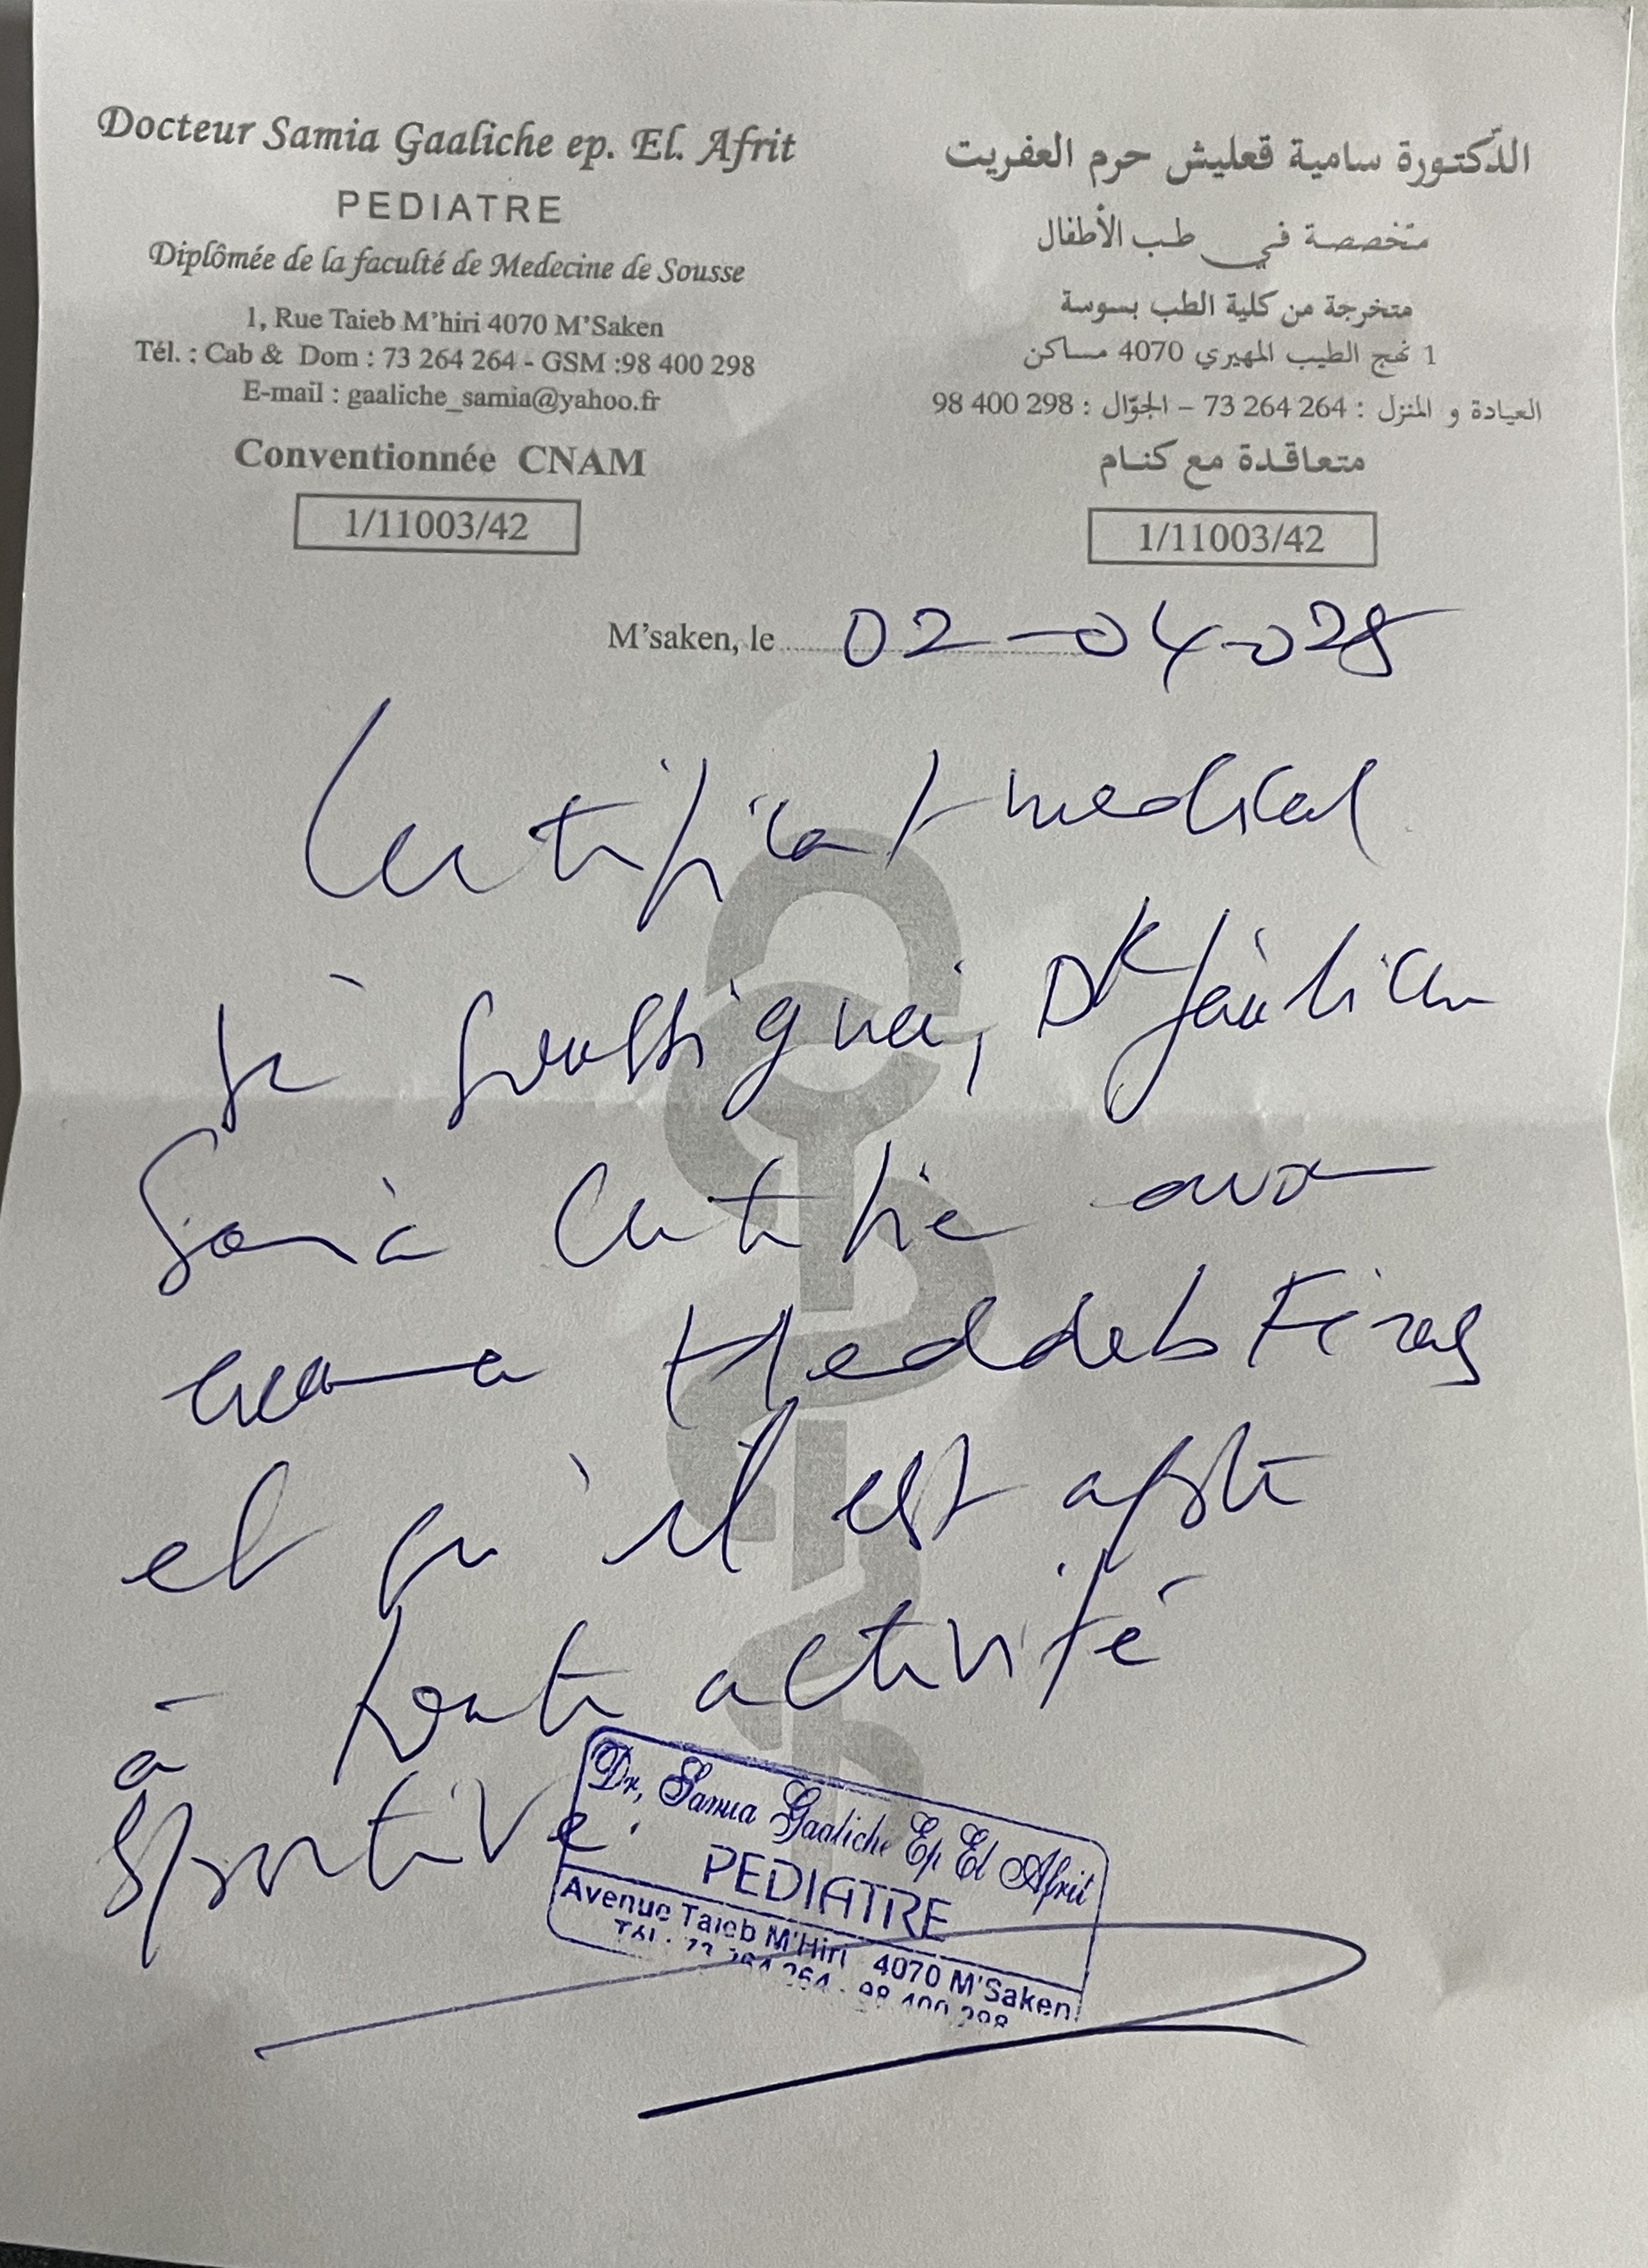 Docteur Samia Gaaliche ep. El. Afrit
PEDIATRE
Diplômée de la faculté de Medecine de Sousse
1, Rue Taieb M'hiri 4070 M'Saken
Tél. : Cab & Dom : 73 264 264 - GSM :98 400 298
E-mail : gaaliche_samia@yahoo.fr
Conventionnée CNAM
1/11003/42
الدّكتورة سامية قعليش حرم العفريت
متخصصة في طب الأطفال
متخرجة من كلية الطب بسوسة
1 نهج الطيب المهيري 4070 مساكن
العيادة و المنزل : 264 264 73 – الجوّال : 298 400 98
متعاقدة مع كنام
1/11003/42
M'saken, le 02-04-
Certificat medical
Je soussigné, Dr Gaaliche
Samia Certifie avoir
examiné Heddeb Firas
et qu'il est apte
à toute activité
sportive.
Dr, Samia Gaaliche Ep El Afrit
PEDIATRE
Avenue Taieb M'Hiri 4070 M'Saken
Tél : 73 264 264 - 98 400 298